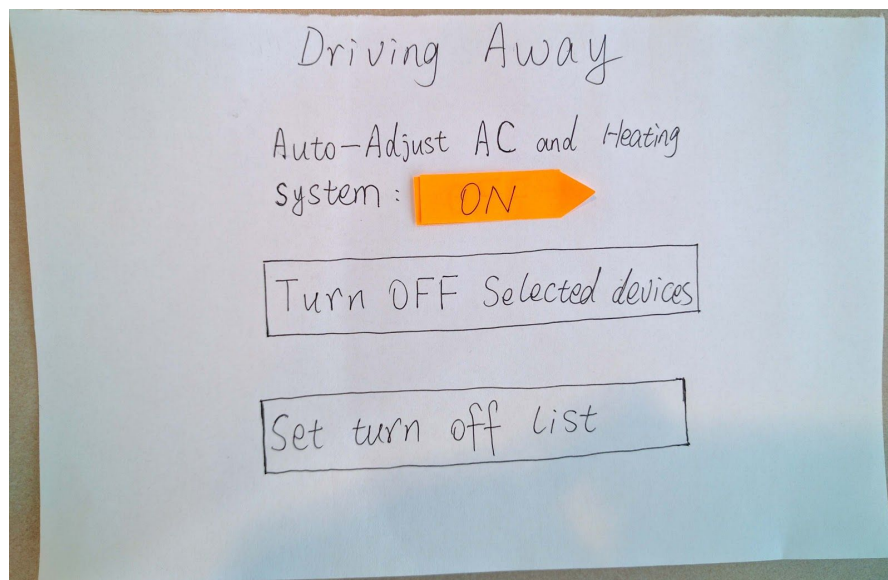 Driving Away
Auto-Adjust AC and Heating
system: ON
Turn OFF Selected devices
Set turn off list